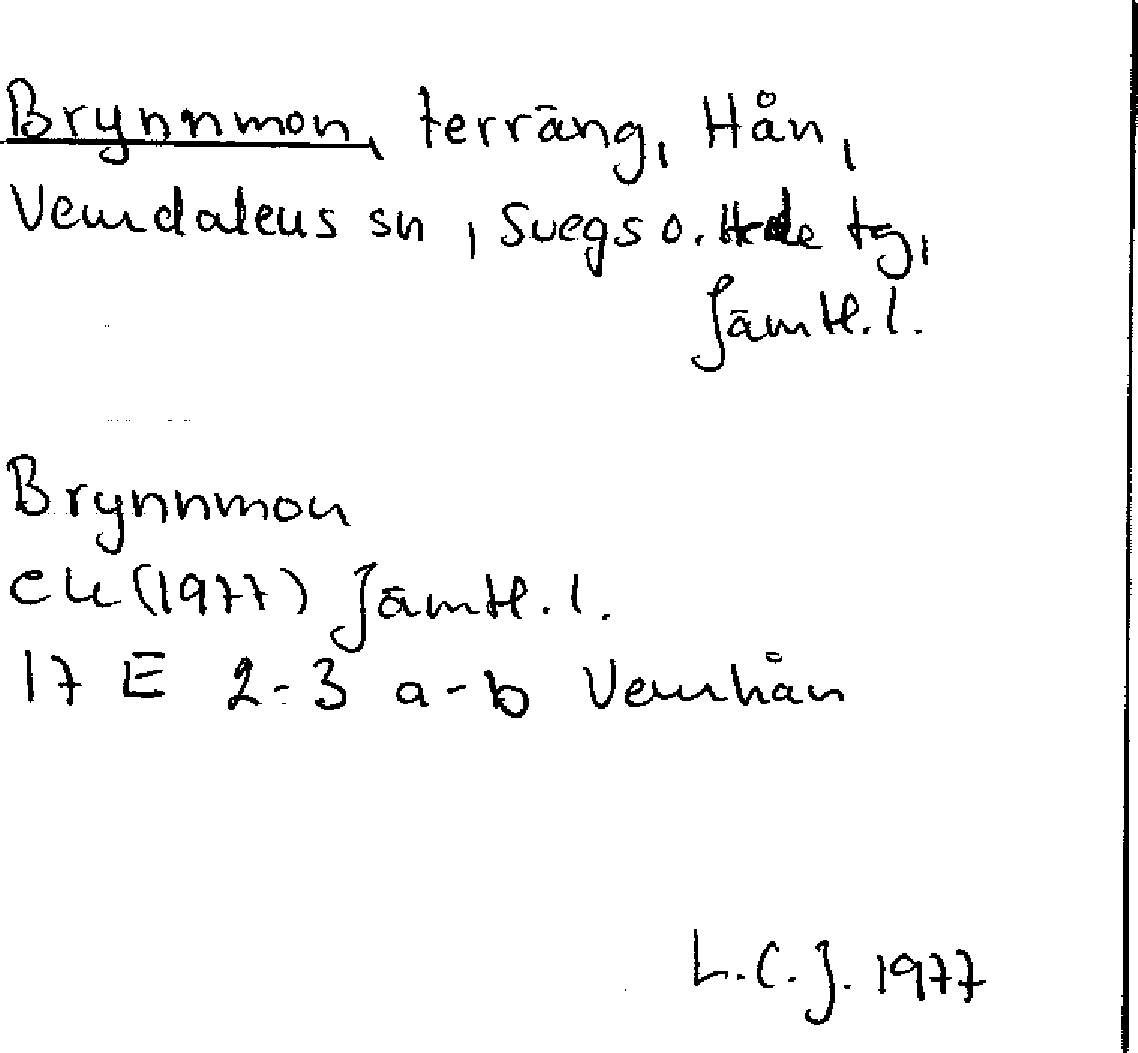 Brynnmon, terräng, Hån,
Vemdalens sn, Svegs o. Hede tg,
Jämtl. l.
Brynnmon
ek (1977) Jämtl. l.
17 E 2-3 a-b Vemhån
L.C.J. 1977